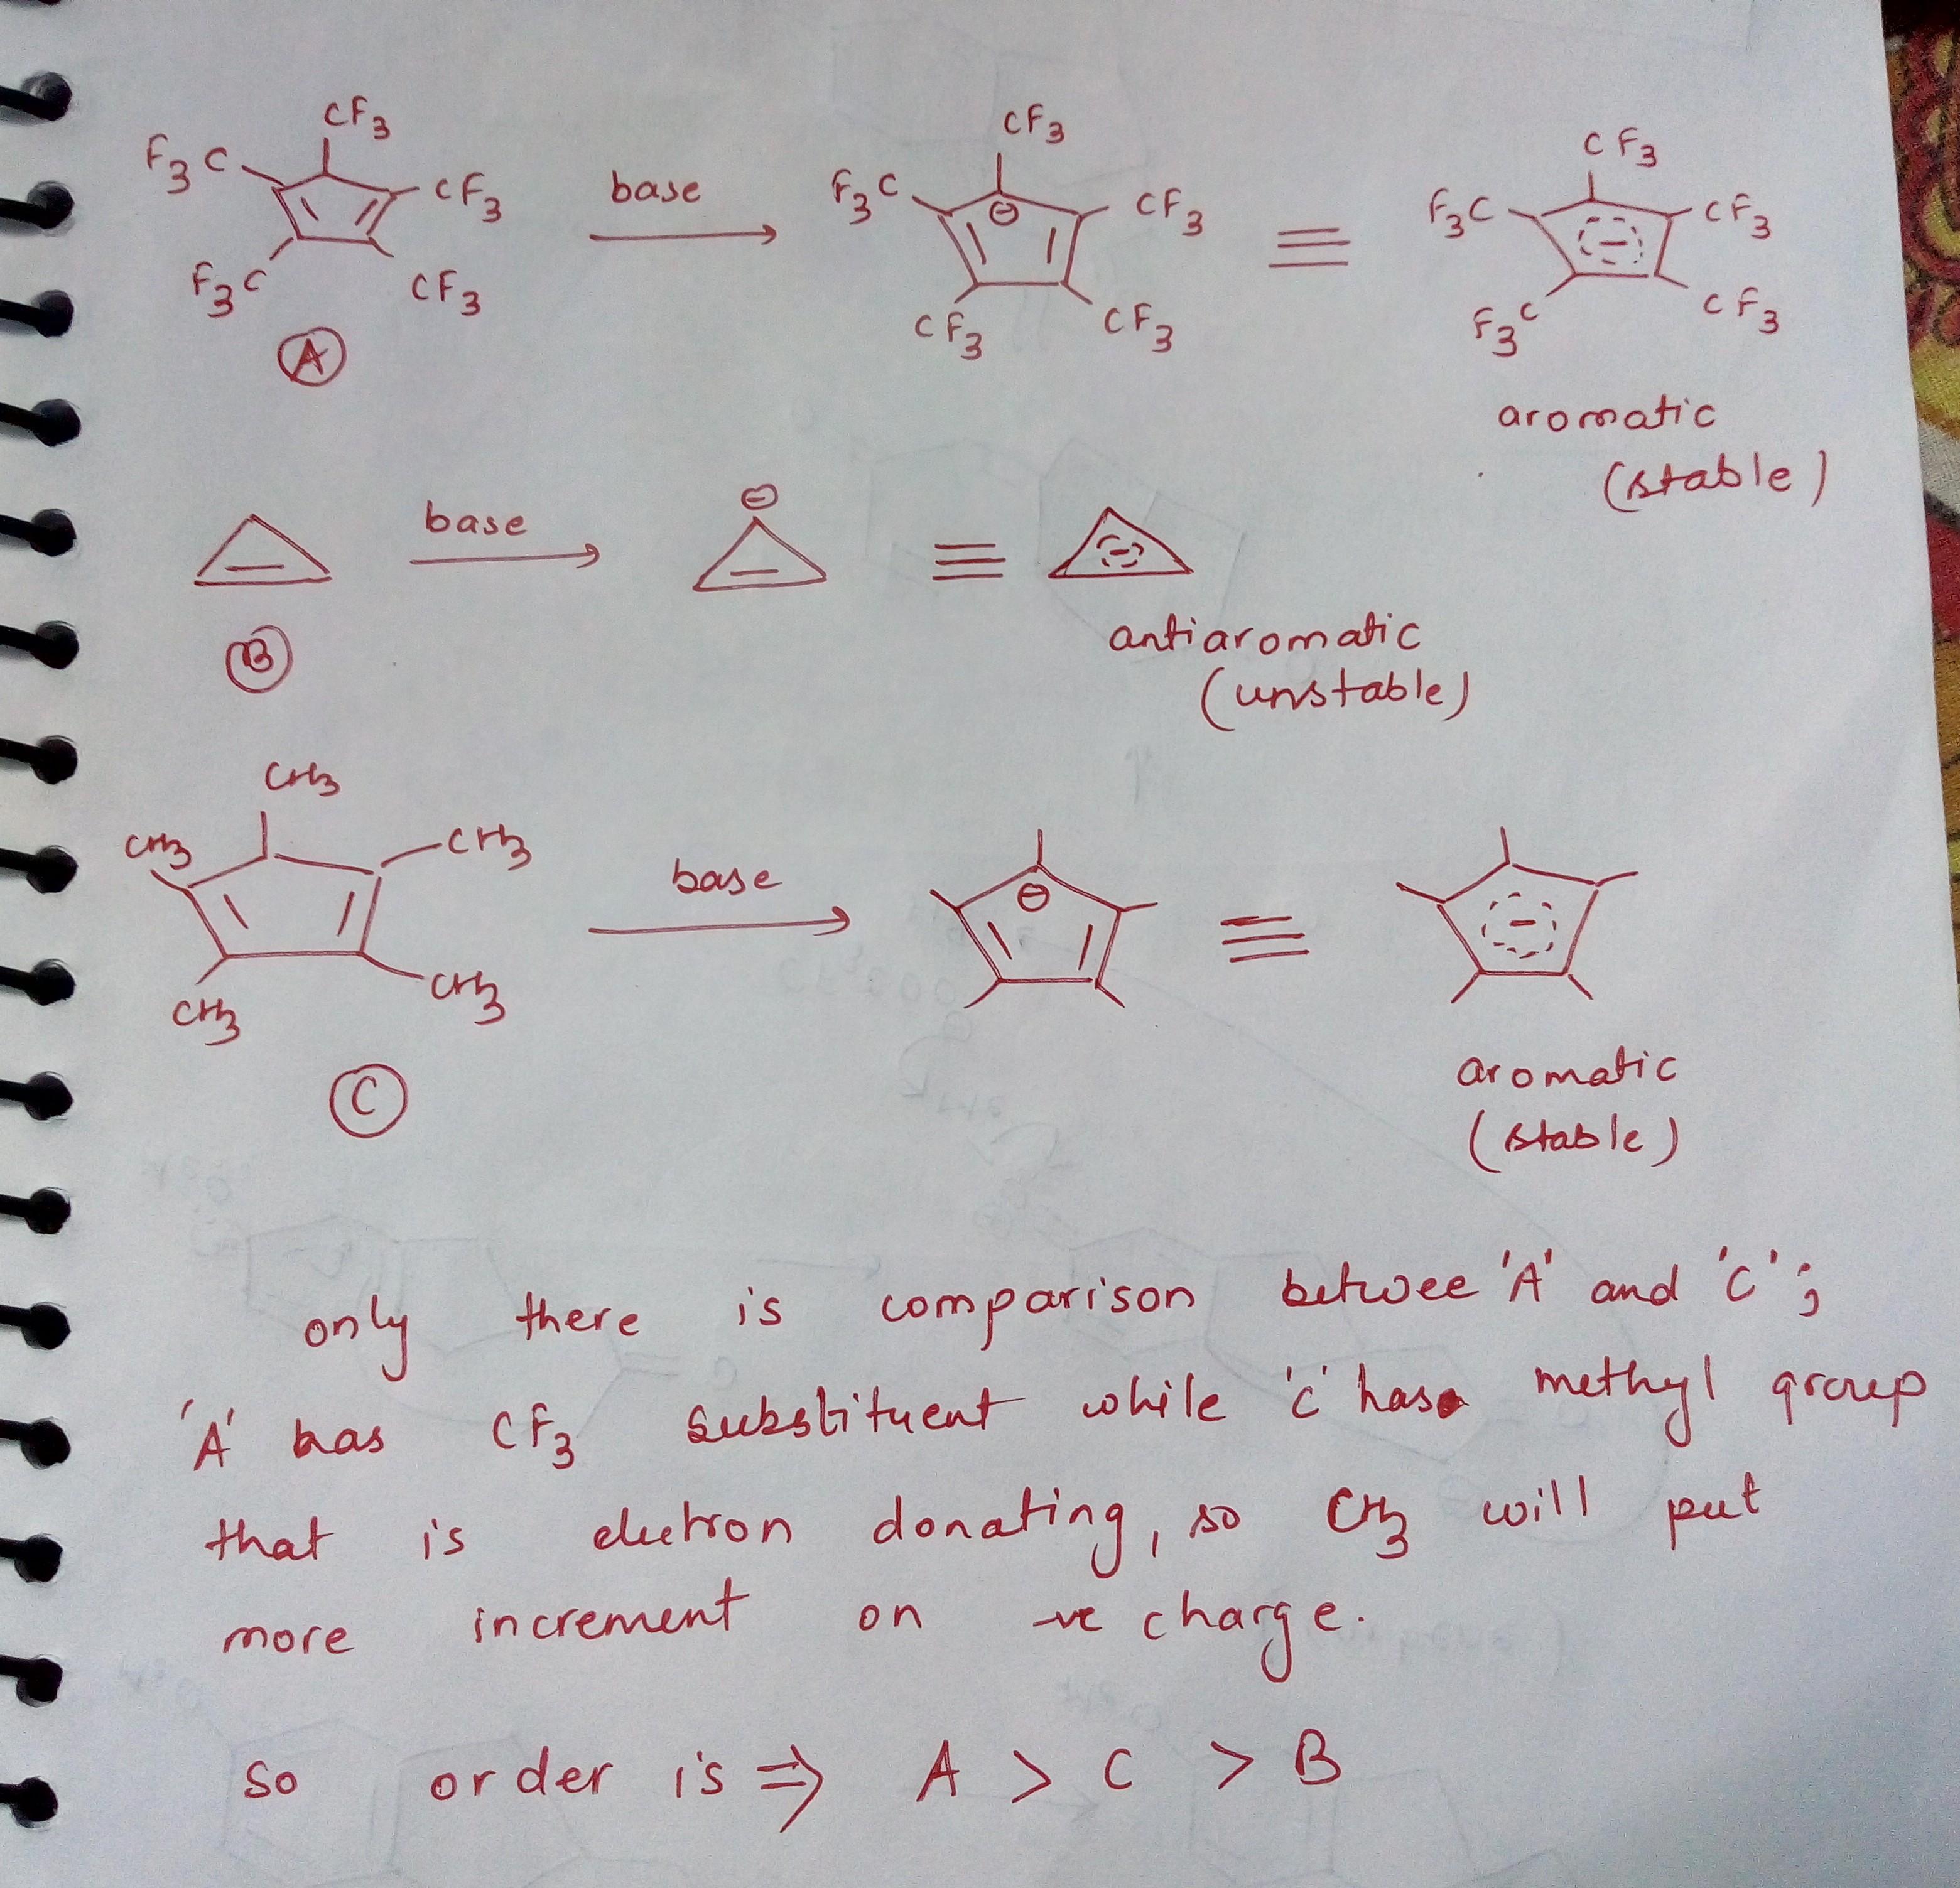 CF3 CF3 CF3
F3C CF3 base F3C ⊖ CF3 ≡ F3C − CF3
F3C CF3 CF3 CF3 F3C CF3
A
aromatic
(stable)
base ⊖ ≡ −
B
antiaromatic
(unstable)
CH3
CH3 CH3 base ⊖ ≡ −
CH3 CH3
C
aromatic
(stable)
only there is comparison betwee 'A' and 'C';
'A' has CF3 substituent while 'C' has methyl group
that is electron donating, so CH3 will put
more increment on -ve charge.
so order is ⇒ A > C > B